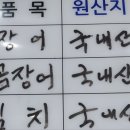 품 목 원산지
장 어 국내산
곰장어 국내산
치 국내산